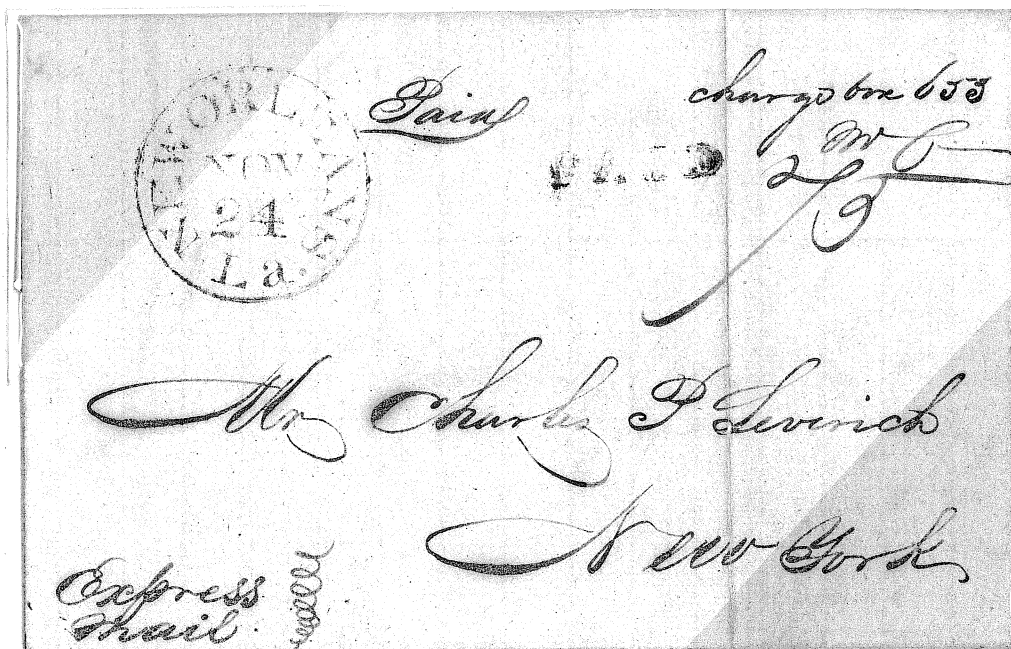 NEW-ORLEANS
NOV
24
La.
Paid
charge box 653
PAID
Mr Charles P Leverich
New York
Express
Mail